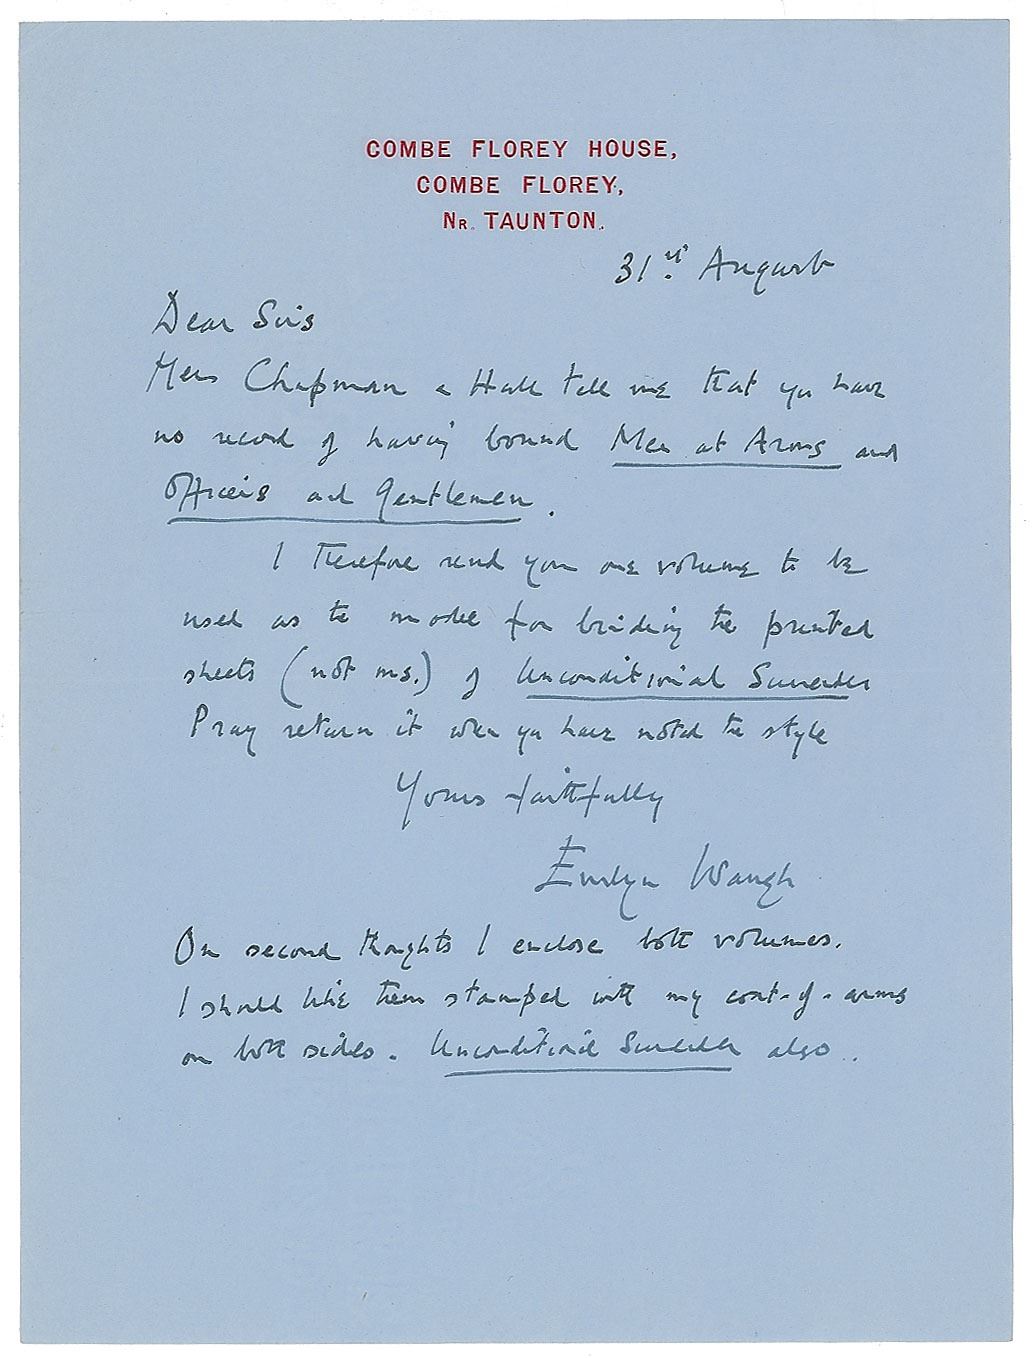 COMBE FLOREY HOUSE,
COMBE FLOREY,
Nr. TAUNTON.
31st August
Dear Sirs
Mess Chapman & Hall tell me that you have
no record of having bound Men at Arms and
Officers and Gentlemen.
I therefore send you one volume to be
used as the model for binding the printed
sheets (not ms.) of Unconditional Surrender
Pray return it when you have noted the style
Yours faithfully
Evelyn Waugh
On second thoughts I enclose both volumes.
I should like them stamped with my coat-of-arms
on both sides. Unconditional Surrender also.